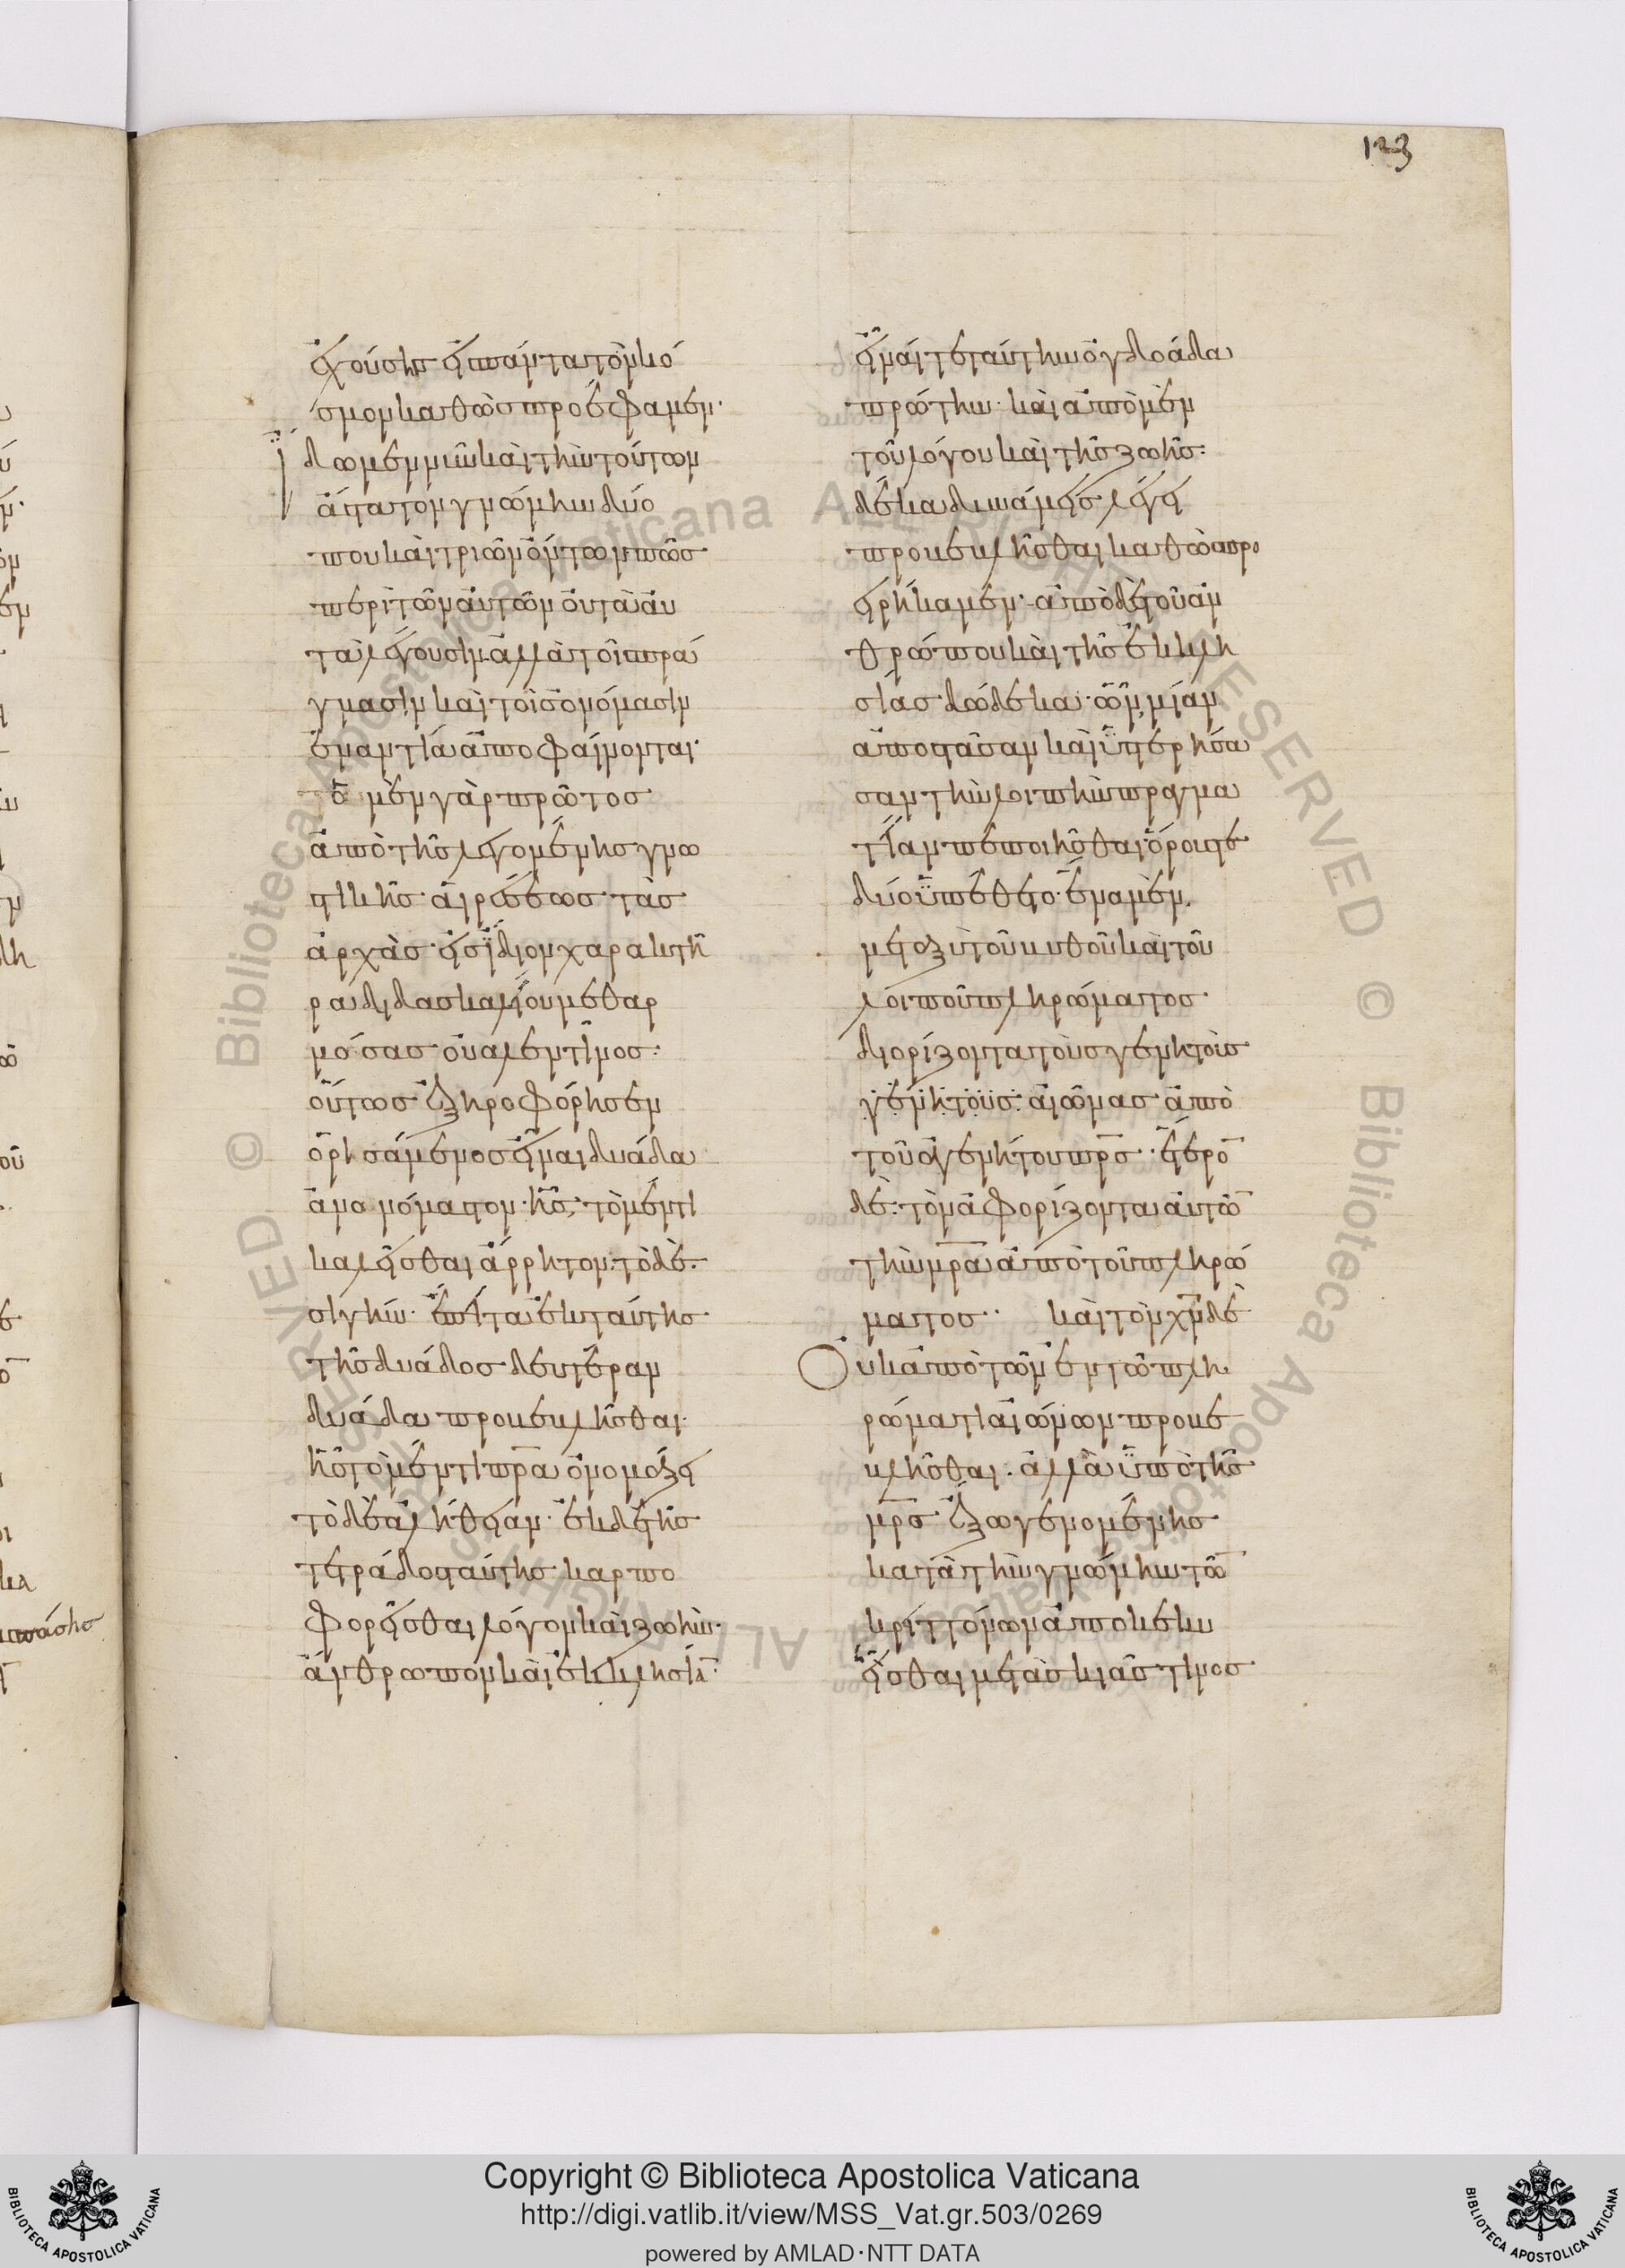 123
ἐχούσης εἰς πάντα τὸν κό
σμον καθὼς προέφαμεν·
ἴδωμεν νῦν καὶ τὴν τούτων
ἄστατον γνώμην δύο
που καὶ τριῶν ὄντων πῶς
περὶ τῶν αὐτῶν οὐ τὰ αὐ
τὰ λέγουσιν· ἀλλὰ τοῖς πρά
γμασιν καὶ τοῖς ὀνόμασιν
ἐναντία ἀποφαίνονται·
ὁ μὲν γὰρ πρῶτος
ἀπὸ τῆς λεγομένης γνω
στικῆς αἱρέσεως τὰς
ἀρχὰς εἰς ἴδιον χαρακτῆ
ρα διδασκαλίου μεθαρ
μόσας οὐαλεντῖνος·
οὕτως ἐξηροφόρησεν
ὁρησάμενος εἶναι δυάδα
ἀνονόμαστον· ἧς τὸ μέν τι
καλεῖσθαι ἄρρητον· τὸ δὲ
σιγήν· ἔπειτα ἐκ ταύτης
τῆς δυάδος δευτέραν
δυάδα προκεκλῆσθαι·
ἧς τὸ μέν τι πρ̅α ὀνομάζει
τὸ δὲ ἀλήθειαν· ἐκ δὲ τῆς
τετράδος ταύτης καρπο
φορεῖσθαι λόγον καὶ ζωήν·
ἄνθρωπον καὶ ἐκκλησία̅·
εἶναί τε ταύτην ὀγδοάδα
πρώτην· καὶ ἀπὸ μὲν
τοῦ λόγου καὶ τῆς ζωῆς·
δέκα δυνάμεις λέγει
προκεκλῆσθαι καθὼς προ
ειρήκαμεν· ἀπὸ δὲ τοῦ ἀν
θρώπου καὶ τῆς ἐκκλη
σίας δώδεκα· ὧν μίαν
ἀποστᾶσαν καὶ ὑστερήσα
σαν τὴν λοιπὴν πραγμα
τίαν πεποιῆσθαι ὅρους τε
δύο ὑπέθετο· ἕνα μὲν
μεταξὺ τοῦ βυθοῦ καὶ τοῦ
λοιποῦ πληρώματος
διορίζοντα τοὺς γεννητοῖς
γεννητοὺς αἰῶνας ἀπὸ
τοῦ ἀγεννήτου πρ̅ς· ἕτερο̅
δὲ· τὸν ἀφορίζοντα αὐτῶ̅
τὴν μρ̅α ἀπὸ τοῦ πληρώ
ματος·· καὶ τὸν χν̅ δὲ
Οὐκ ἀπὸ τῶν ἐν τῶ πλη
ρώματι αἰώνων προκε
κλῆσθαι· ἀλλὰ ὑπὸ τῆς
μρ̅ς ἔξω γενομένης
κατὰ τὴν γνώμην τῶ̅
κριττόνων ἀποκεκυ
εῖσθαι μετὰ σκιᾶς τινος